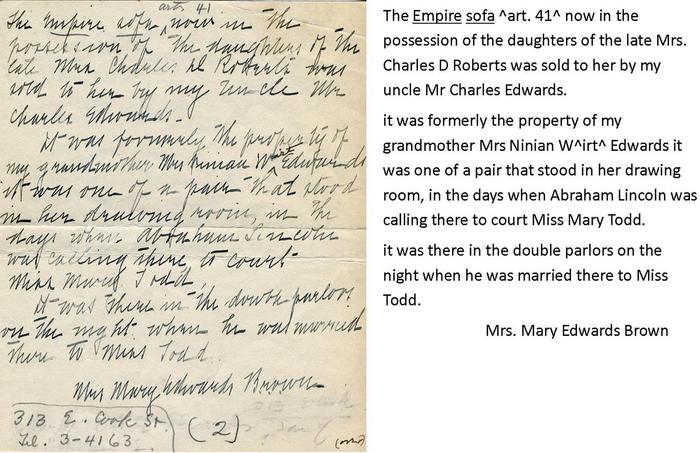 art. 41
The Empire sofa ^ now in the
possession of the daughters of the
late Mrs Charles D Roberts was
sold to her by my Uncle Mr
Charles Edwards.
It was formerly the property of
my grandmother Mrs Ninian Wirt Edwards
it was one of a pair that stood
in her drawing room, in the
days when Abraham Lincoln
was calling there to court
Miss Mary Todd.
It was there in the double parlors
on the night when he was married
there to Miss Todd.
Mrs Mary Edwards Brown
313 E. Cook St.
Tel. 3-4163
(2)
(over)
The Empire sofa ^art. 41^ now in the
possession of the daughters of the late Mrs.
Charles D Roberts was sold to her by my
uncle Mr Charles Edwards.
it was formerly the property of my
grandmother Mrs Ninian W^irt^ Edwards it
was one of a pair that stood in her drawing
room, in the days when Abraham Lincoln was
calling there to court Miss Mary Todd.
it was there in the double parlors on the
night when he was married there to Miss
Todd.
Mrs. Mary Edwards Brown